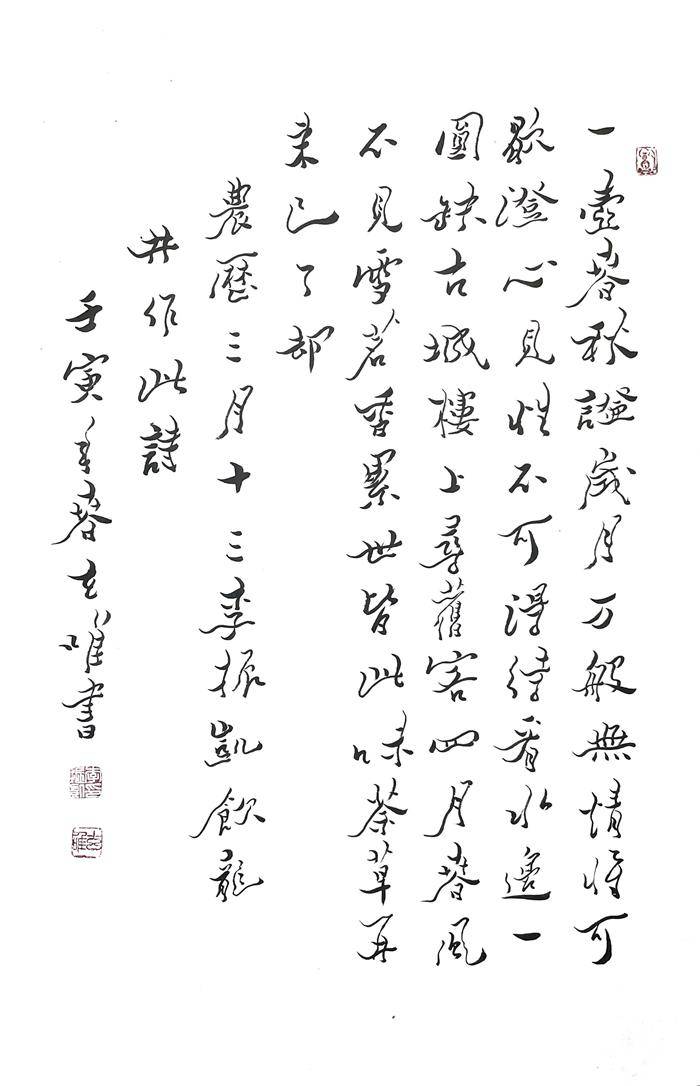 一壺春秋諡歲月万般無情惟可
歇澄心見性不可得待看水邊一
圓缺古城樓上尋舊客四月春風
不見雪茗香累世皆此味茶草再
来已了却
農歷三月十三李振凱飲龍
井作此詩
壬寅年春玄唯書